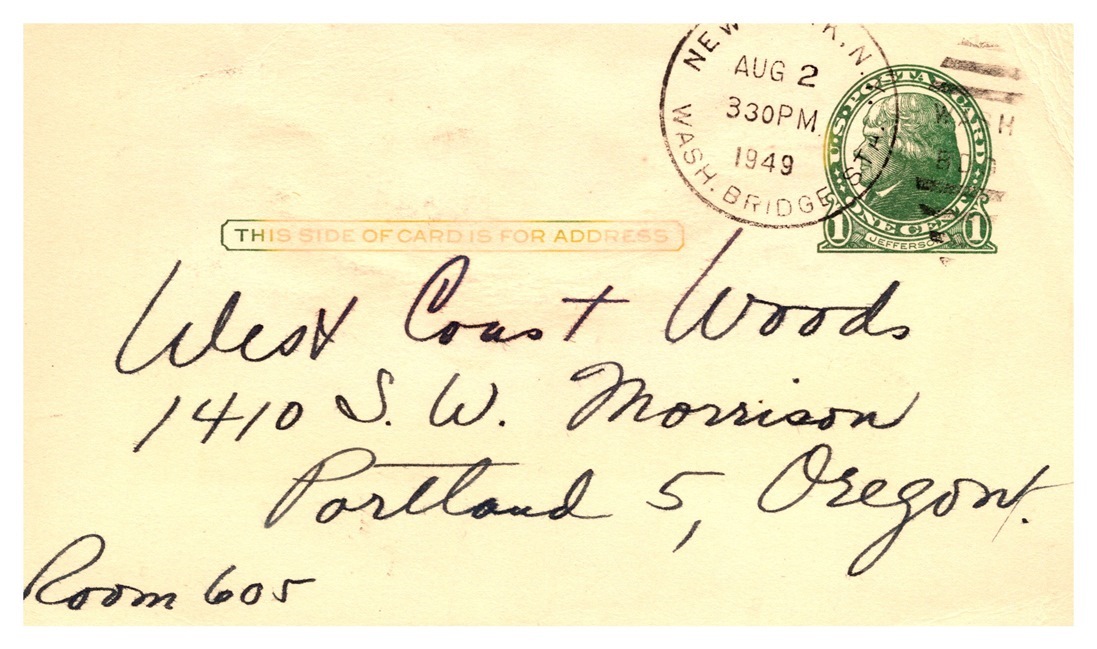 NEW YORK, N.Y.
AUG 2
330PM
1949
WASH. BRIDGE STA.
WASH
BDG
U.S. POSTAL CARD
ONE CENT
1 JEFFERSON 1
THIS SIDE OF CARD IS FOR ADDRESS
West Coast Woods
1410 S. W. Morrison
Portland 5, Oregon.
Room 605